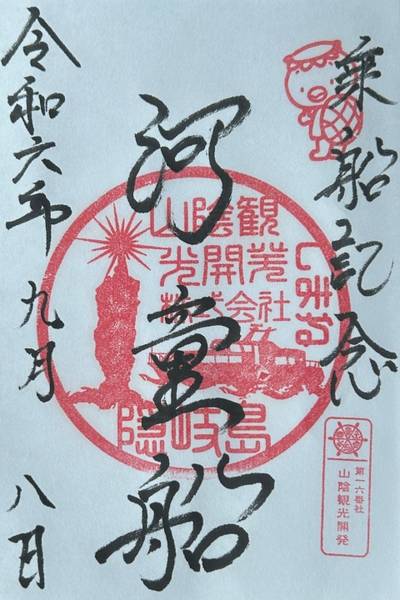 乗船記念
河童船
令和六年 九月 八日
山陰観
光開発
株式会社
隠岐島
第一六番社
山陰観光開発